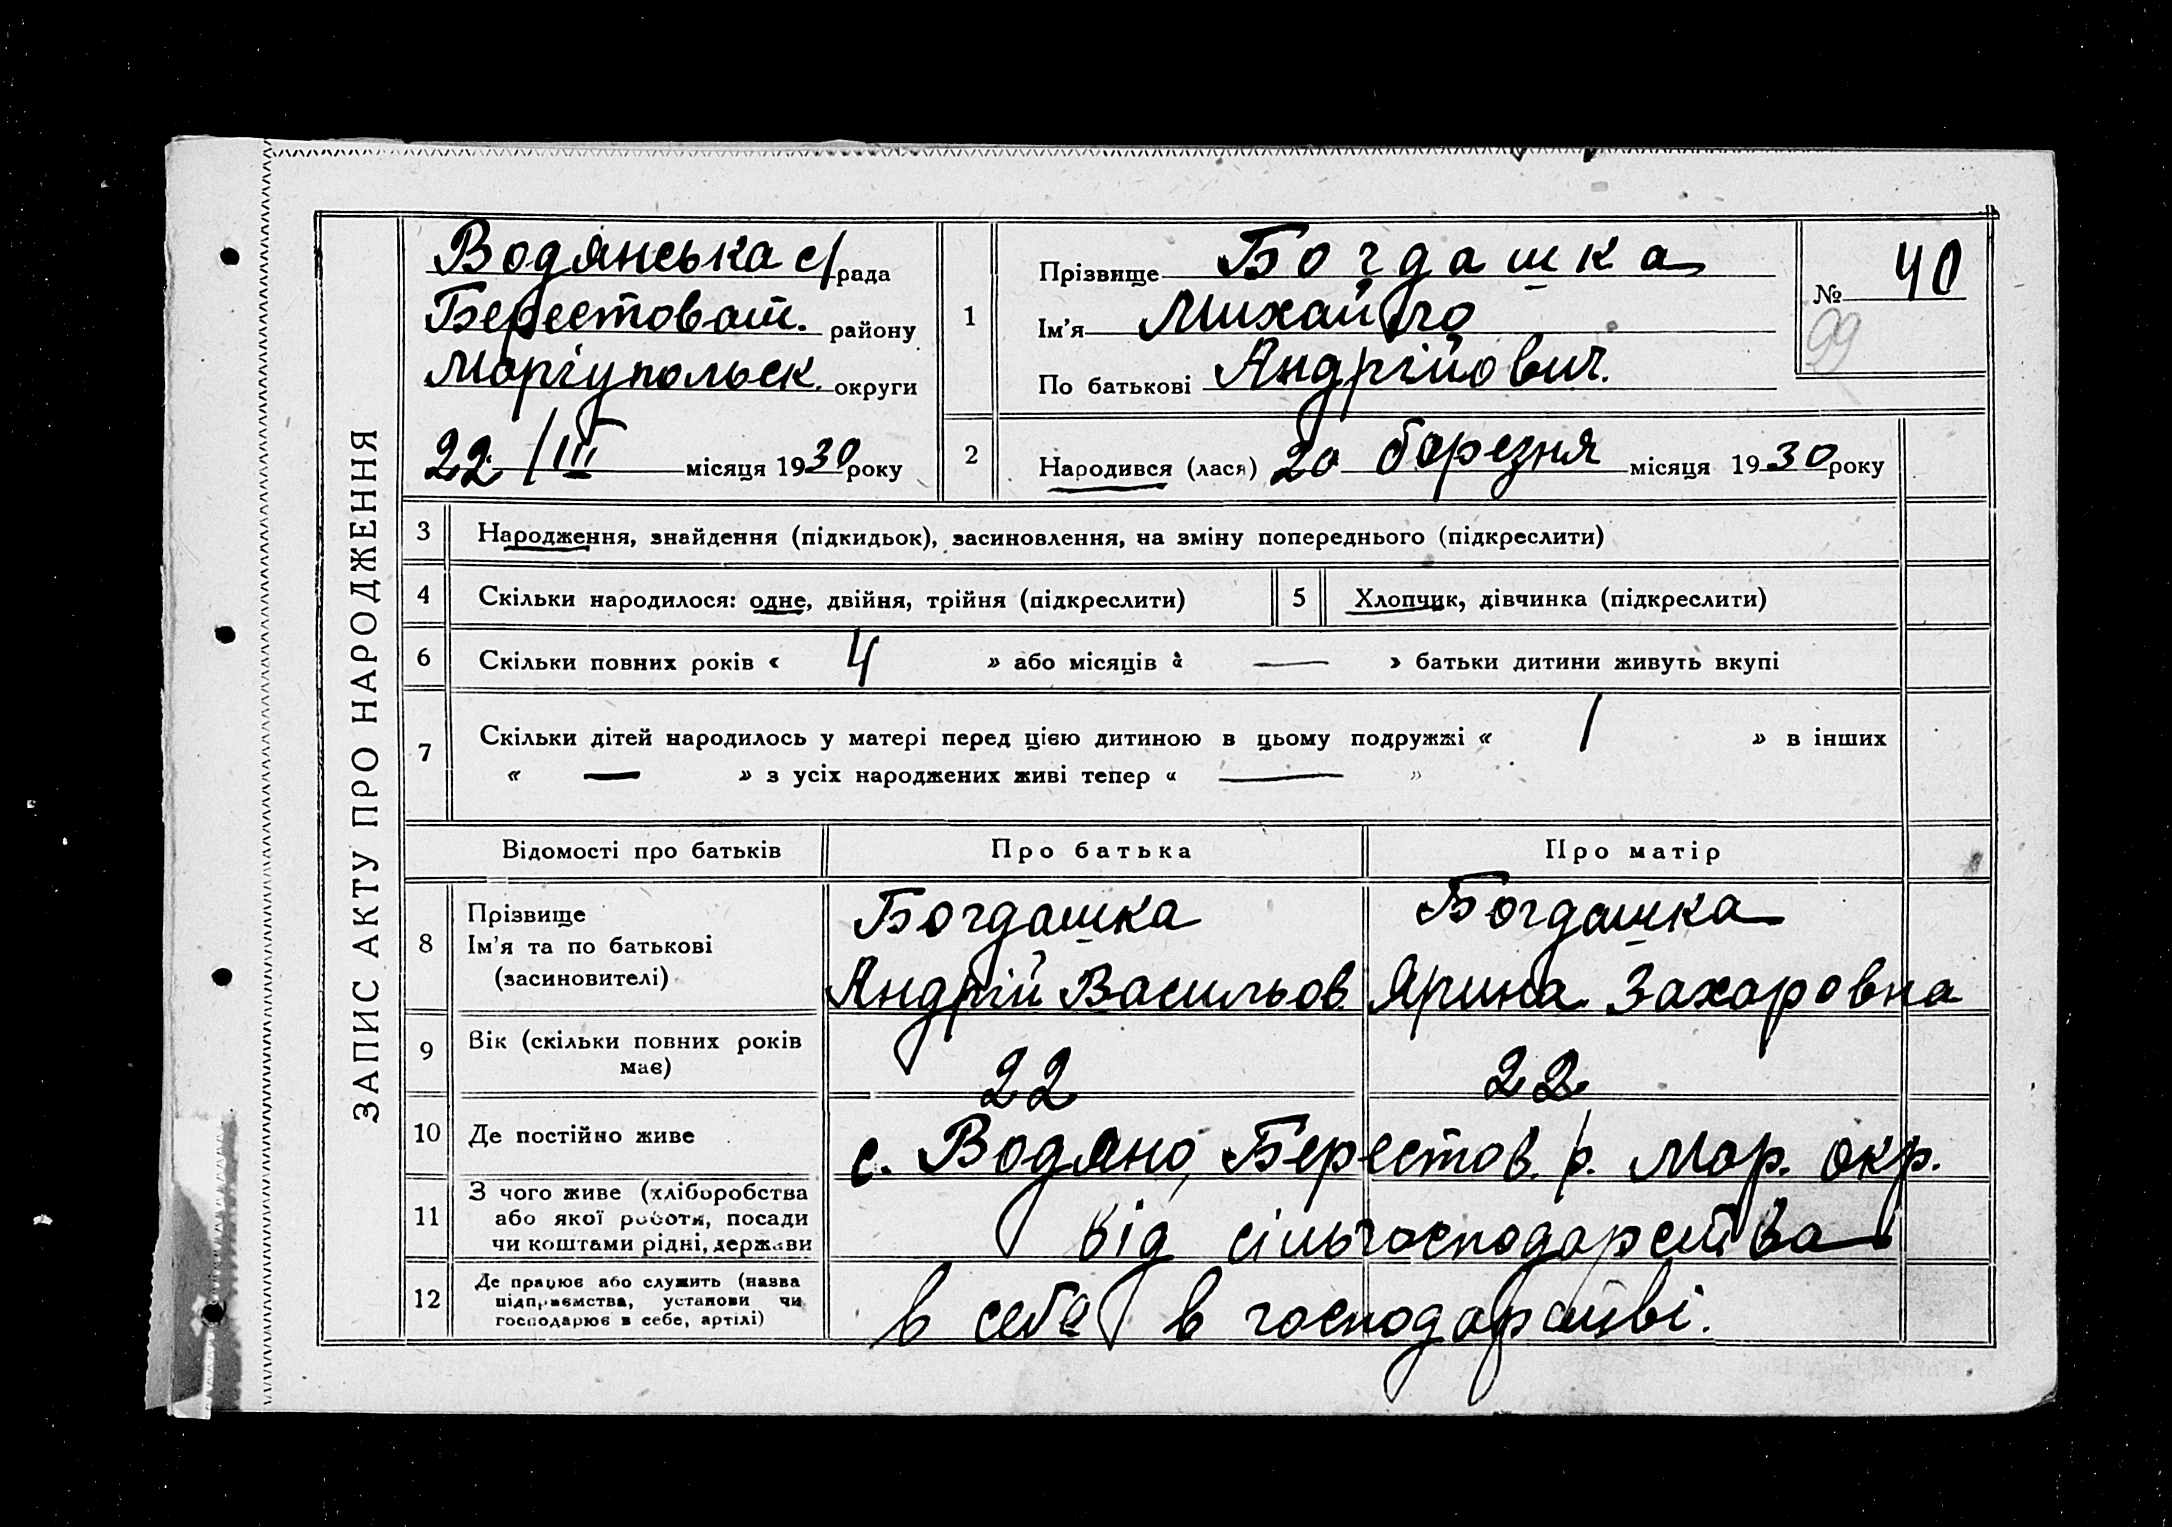 ЗАПИС АКТУ ПРО НАРОДЖЕННЯ
Водянська с/рада
Берестоват. району
Маріупольськ. округи
22/III місяця 1930 року
1
Прізвище Богдашка
Ім'я Михайло
По батькові Андрійович.
№ 40
99
2
Народився (лася) 20 березня місяця 1930 року
3 Народження, знайдення (підкидьок), засиновлення, на зміну попереднього (підкреслити)
4 Скільки народилося: одне, двійня, трійня (підкреслити)
5 Хлопчик, дівчинка (підкреслити)
6 Скільки повних років « 4 » або місяців « — » батьки дитини живуть вкупі
7 Скільки дітей народилось у матері перед цією дитиною в цьому подружжі « 1 » в інших
« — » з усіх народжених живі тепер « — »
Відомості про батьків
Про батька
Про матір
8
Прізвище
Ім'я та по батькові
(засиновителі)
Богдашка
Андрій Васильов.
Богдашка
Ярина Захаровна
9
Вік (скільки повних років
має)
22
22
10 Де постійно живе
с. Водяно, Берестов. р. Мар. окр.
11
З чого живе (хліборобства
або якої роботи, посади
чи коштами рідні, держави
від сільгосподарства
12
Де працює або служить (назва
підприємства, установи чи
господарює в себе, артілі)
в себе в господарстві.